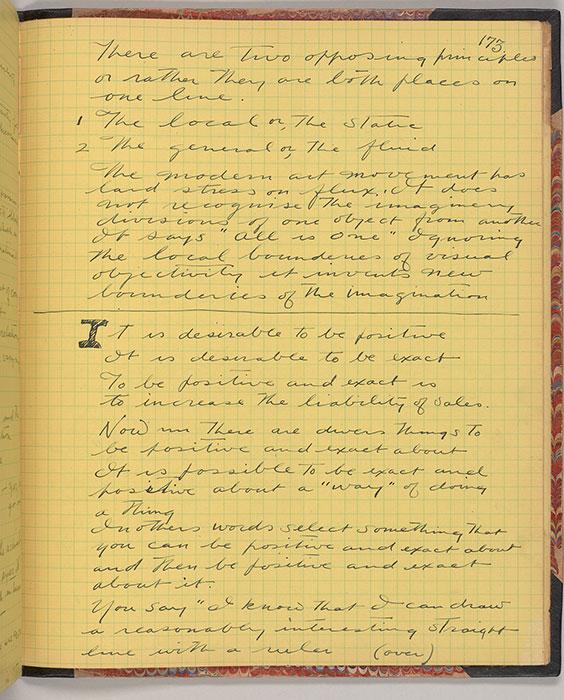 173
There are two opposing principles
or rather they are both places on
one line.
1 The local or, the static
2 The general or, the fluid
The modern art movement has
laid stress on flux, it does
not recognise the imaginery
divisions of one object from another
It says "all is one" Ignoring
the local bounderies of visual
objectivity it invents new
bounderies of the imagination
It is desirable to be positive
It is desirable to be exact
To be positive and exact is
to increase the liability of sales.
Now there are divers things to
be positive and exact about
It is possible to be exact and
positive about a "way" of doing
a thing
In others words select something that
you can be positive and exact about
and then be positive and exact
about it.
You say "I know that I can draw
a reasonably interesting straight
line with a ruler (over)